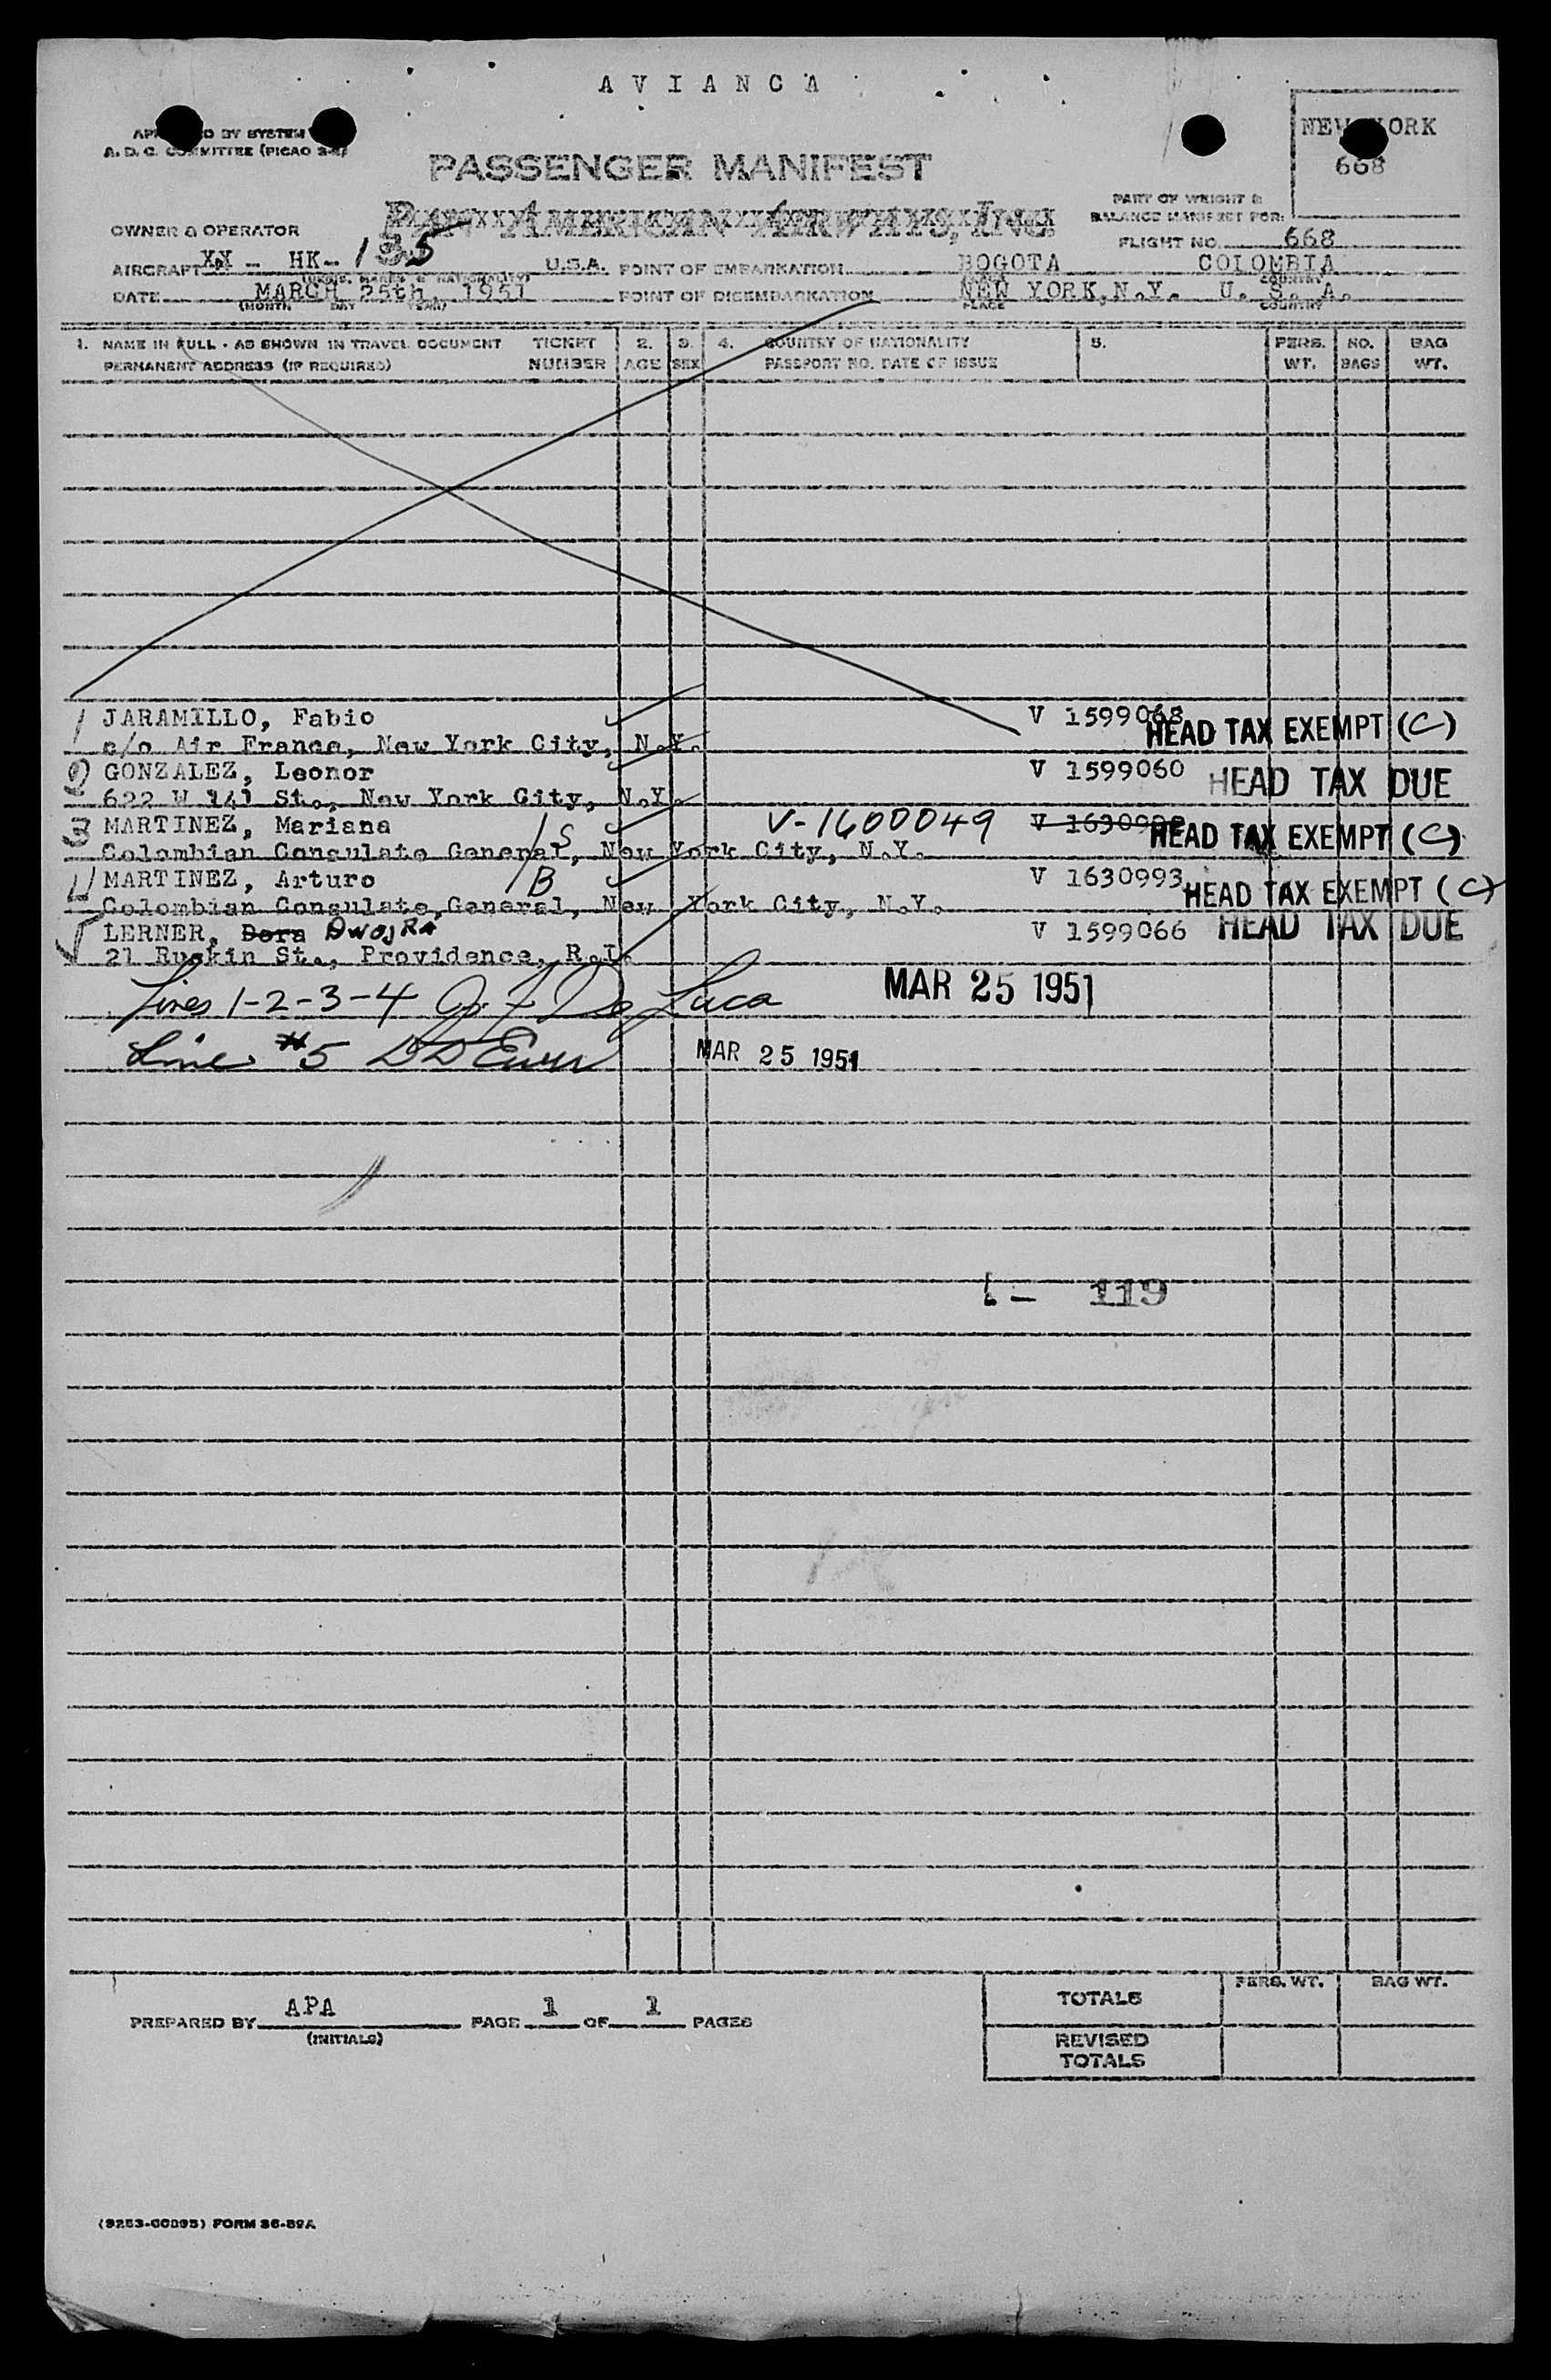 AVIANCA
BY SYSTEM
A. D. C. COMMITTEE (PICAO
NEW YORK
668
PASSENGER MANIFEST
PAN AMERICAN AIRWAYS, INC.
PART OF WEIGHT &
BALANCE MANIFEST FOR:
OWNER & OPERATOR
FLIGHT NO. 668
AIRCRAFT XX - HK-135 U.S.A. POINT OF EMBARKATION BOGOTA COLOMBIA
(MARKS & NATIONALITY) COUNTRY
DATE MARCH 25th, 1951 POINT OF DISEMBARKATION NEW YORK, N.Y. U. S. A.
(MONTH DAY YEAR) PLACE COUNTRY
1. NAME IN FULL - AS SHOWN IN TRAVEL DOCUMENT TICKET 2. 3. 4. COUNTRY OF NATIONALITY 5. PERS. NO. BAG
PERMANENT ADDRESS (IF REQUIRED) NUMBER AGE SEX PASSPORT NO. DATE OF ISSUE WT. BAGS WT.
1 JARAMILLO, Fabio V 1599068 HEAD TAX EXEMPT (C)
c/o Air France, New York City, N.Y.
2 GONZALEZ, Leonor V 1599060 HEAD TAX DUE
622 W 141 St., New York City, N.Y.
3 MARTINEZ, Mariana /S V-1600049 HEAD TAX EXEMPT (C)
Colombian Consulate General, New York City, N.Y.
4 MARTINEZ, Arturo /B V 1630993 HEAD TAX EXEMPT (C)
Colombian Consulate, General, New York City, N.Y.
5 LERNER, Dora DWOJRA V 1599066 HEAD TAX DUE
21 Ruskin St., Providence, R.I.
Lines 1-2-3-4 De Luca MAR 25 1951
Line #5 MAR 25 1951
119
PREPARED BY APA PAGE 1 OF 1 PAGES
(INITIALS)
PERS. WT. BAG WT.
TOTALS
REVISED
TOTALS
FORM 36-89A